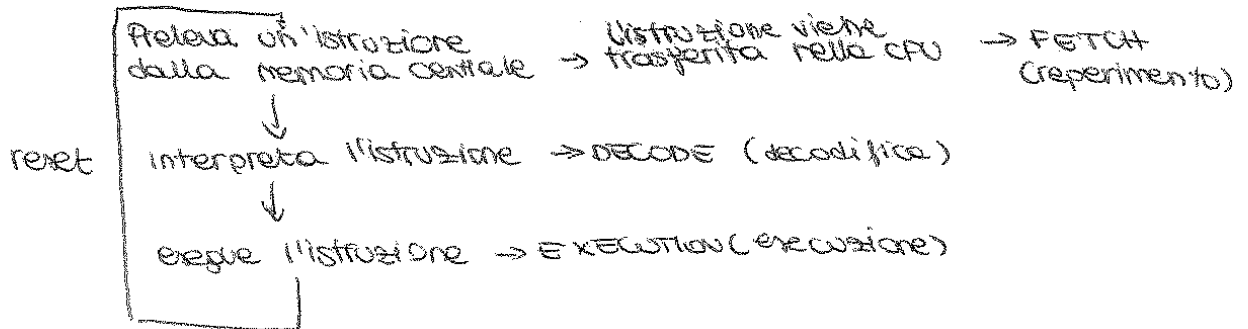 Preleva un'istruzione dalla memoria centrale → L'istruzione viene trasferita nella CPU → FETCH (reperimento)
reset
interpreta l'istruzione → DECODE (decodifica)
esegue l'istruzione → EXECUTION (esecuzione)